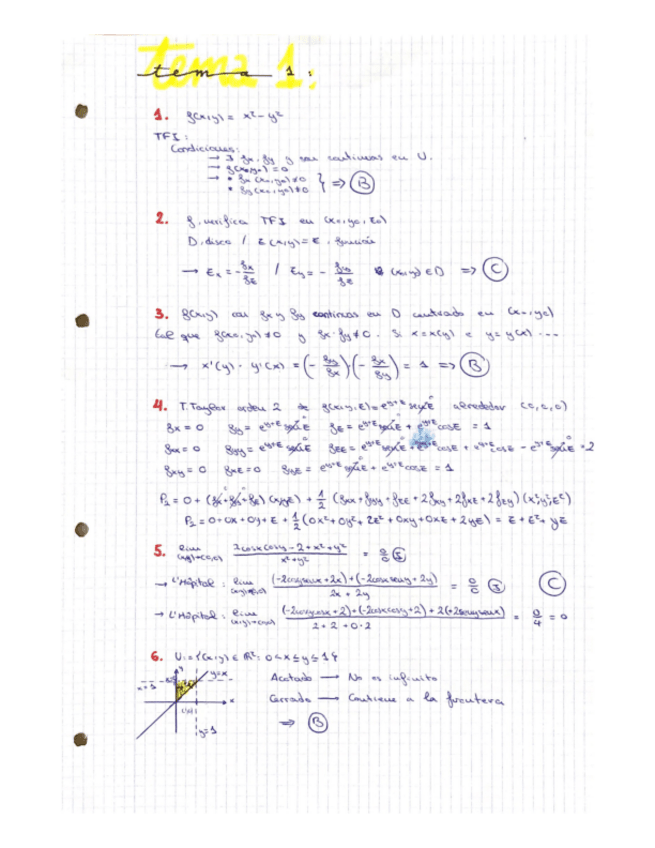 tema 1:
1. f(x,y) = x² - y²
TFI:
Condiciones:
→ ∃ fx, fy y son continuas en U.
→ f(x₀,y₀) = 0
→ • fx(x₀,y₀) ≠ 0
• fy(x₀,y₀) ≠ 0 } ⇒ B
2. f, verifica TFI en (x₀,y₀,z₀)
D, disco / z(x,y) = z, función
→ zx = - fx/fz / zy = - fy/fz (x,y) ∈ D ⇒ C
3. f(x,y) con fx y fy continuas en D centrado en (x₀,y₀)
tal que f(x₀,y₀) ≠ 0 y fx·fy ≠ 0. Si x = x(y) e y = y(x) ...
→ x'(y) · y'(x) = (- fy/fx)(- fx/fy) = 1 ⇒ B
4. T. Taylor orden 2 de f(x,y,z) = e^(y+z) sen z alrededor (0,0,0)
fx = 0 fy = e^(y+z) sen z fz = e^(y+z) sen z + e^(y+z) cos z = 1
fxx = 0 fyy = e^(y+z) sen z fzz = e^(y+z) sen z + e^(y+z) cos z + e^(y+z) cos z - e^(y+z) sen z = 2
fxy = 0 fxz = 0 fyz = e^(y+z) sen z + e^(y+z) cos z = 1
P₂ = 0 + (fx + fy + fz)(x,y,z) + 1/2 (fxx + fyy + fzz + 2fxy + 2fxz + 2fyz)(x²,y²,z²)
P₂ = 0 + 0x + 0y + z + 1/2 (0x² + 0y² + 2z² + 0xy + 0xz + 2yz) = z + z² + yz
5. lim (x,y)→(0,0) 2cosxcosy - 2 + x² + y² / x² + y² = 0/0
→ L'Hôpital: lim (x,y)→(0,0) (-2cosysenx + 2x) + (-2cosxseny + 2y) / 2x + 2y = 0/0 C
→ L'Hôpital: lim (x,y)→(0,0) (-2cosycosx + 2) + (-2cosxcosy + 2) + 2(+2senysenx) / 2 + 2 + 0·2 = 0/4 = 0
6. U = {(x,y) ∈ ℝ²: 0 < x ≤ y ≤ 1}
y y=x
x
y=1
Acotado → No es infinito
Cerrado → Contiene a la frontera
⇒ B